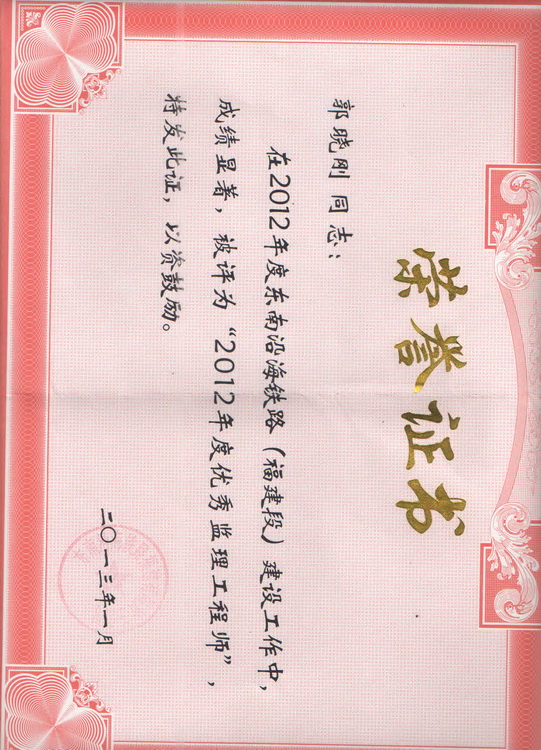 荣誉证书
郭晓刚同志：
在2012年度东南沿海铁路（福建段）建设工作中，
成绩显著，被评为“2012年度优秀监理工程师”，
特发此证，以资鼓励。
二〇一三年一月